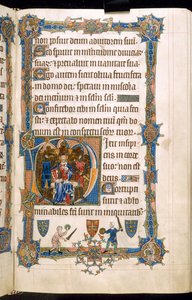 non posuit deum adiutorem suu
Sed sperauit in multitudine diuitiaru
suar et preualuit in uanitate sua
Ego autem sicut oliua fructifera
in domo dei: speraui in miseric
dei in eternum et in sclm scli
Confitebor tibi in sclm quia fecis
ti: et expectabo nomen tuum qm bo
num est in conspectu scor tuor
Dixit insipi
ens in corde
suo: non est
deus
Corrupti
sunt et abho
minabiles fci sunt in iniquitatib